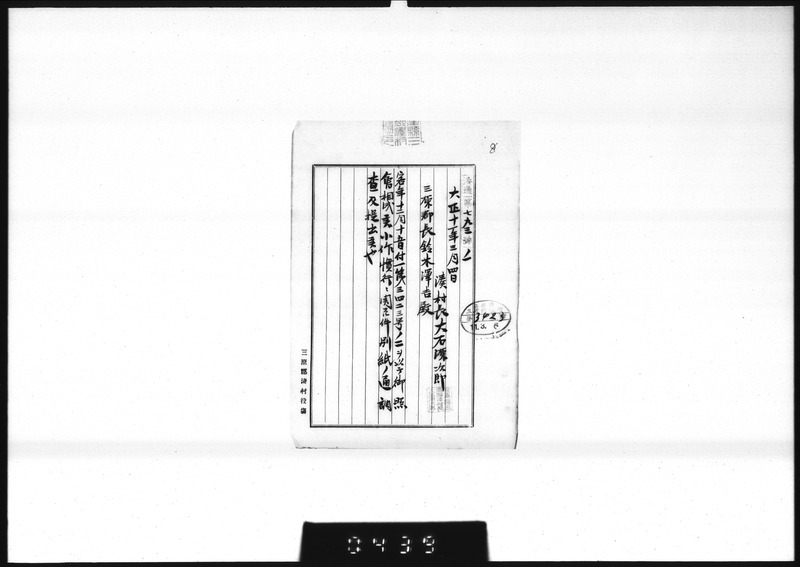 8
湊通第七九三號ノ一
大正十一年三月四日
湊村長大石濱次郎
三原郡長鈴木澤吉殿
客年十二月十日付一第三四二三号ノ二ヲ以テ御照
會相成候小作慣行ニ関スル件別紙ノ通調
査及提出候也
3423
11.3.6
三原郡湊村役場
0439